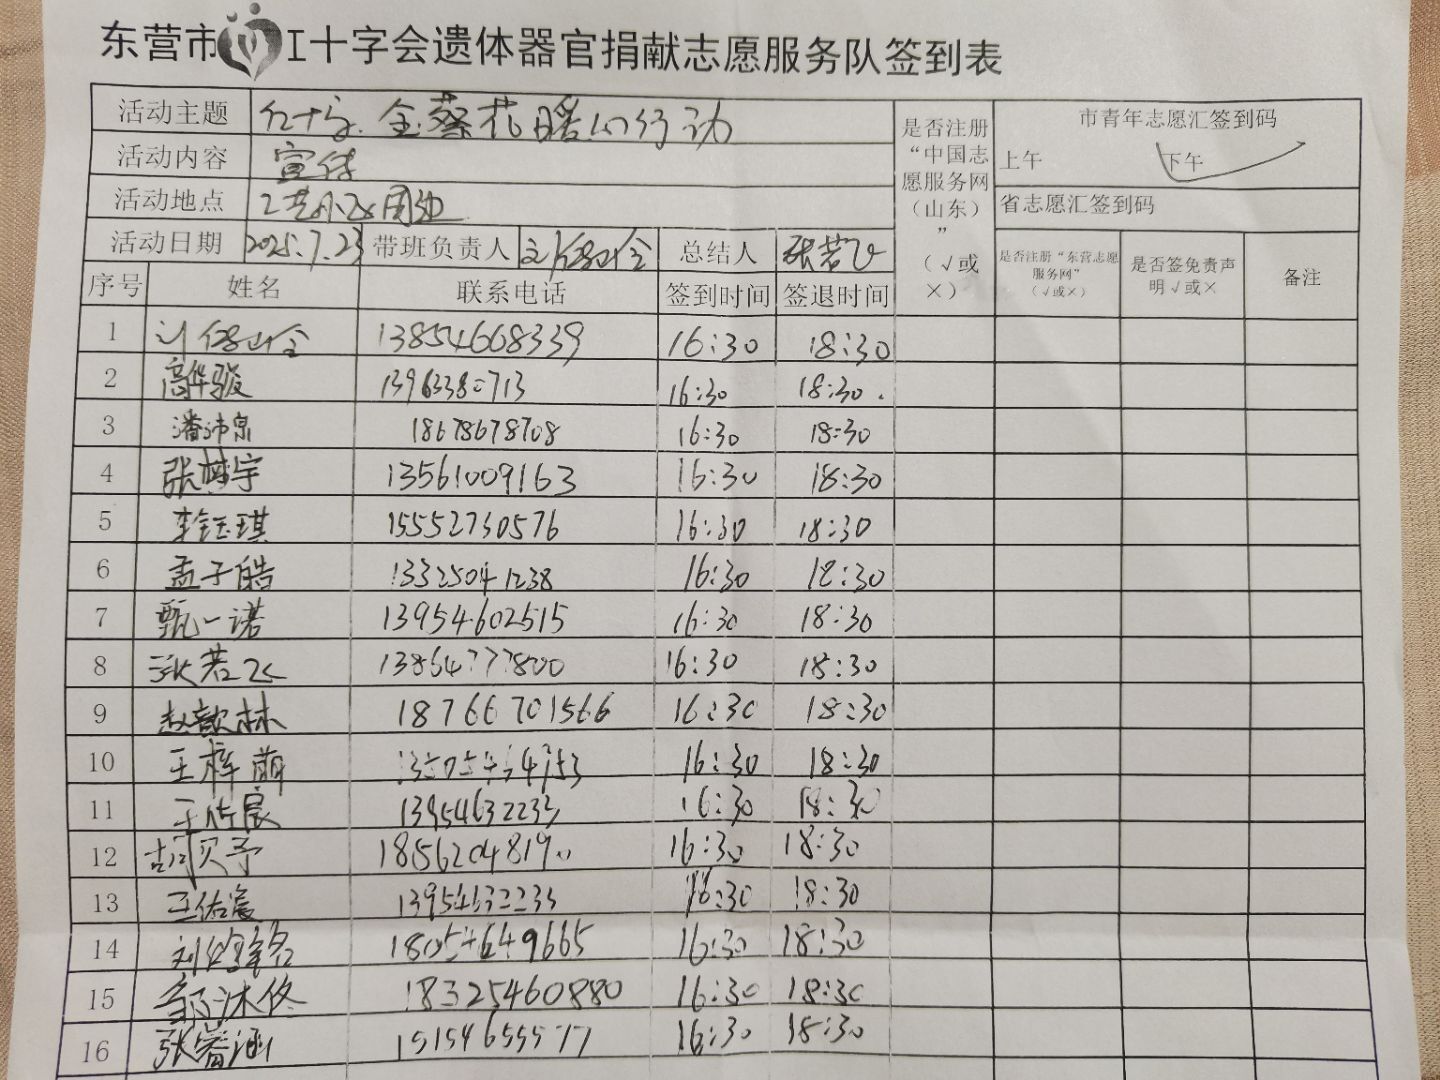 东营市红十字会遗体器官捐献志愿服务队签到表
活动主题 红十字 金葵花暖心行动 是否注册“中国志愿服务网（山东）”（√或×） 市青年志愿汇签到码
上午 下午
活动内容 宣传
活动地点 周边 省志愿汇签到码
活动日期 2025.7.23 带班负责人 总结人 张若飞 是否注册“东营志愿服务网”（√或×） 是否签免责声明√或× 备注
序号 姓名 联系电话 签到时间 签退时间
1 13854668339 16:30 18:30
2 高华骏 16:30 18:30
3 潘沛泉 18678678708 16:30 18:30
4 张树宇 13561009163 16:30 18:30
5 李钰琪 15552730576 16:30 18:30
6 孟子皓 13325041238 16:30 18:30
7 甄一诺 13954602515 16:30 18:30
8 张若飞 13864777800 16:30 18:30
9 赵歆林 18766701566 16:30 18:30
10 王梓萌 16:30 18:30
11 13954632233 16:30 18:30
12 胡贝予 18562048190 16:30 18:30
13 王佑宸 13954632233 16:30 18:30
14 18054649665 16:30 18:30
15 邹沐佟 18325460880 16:30 18:30
16 张睿涵 15154655577 16:30 18:30